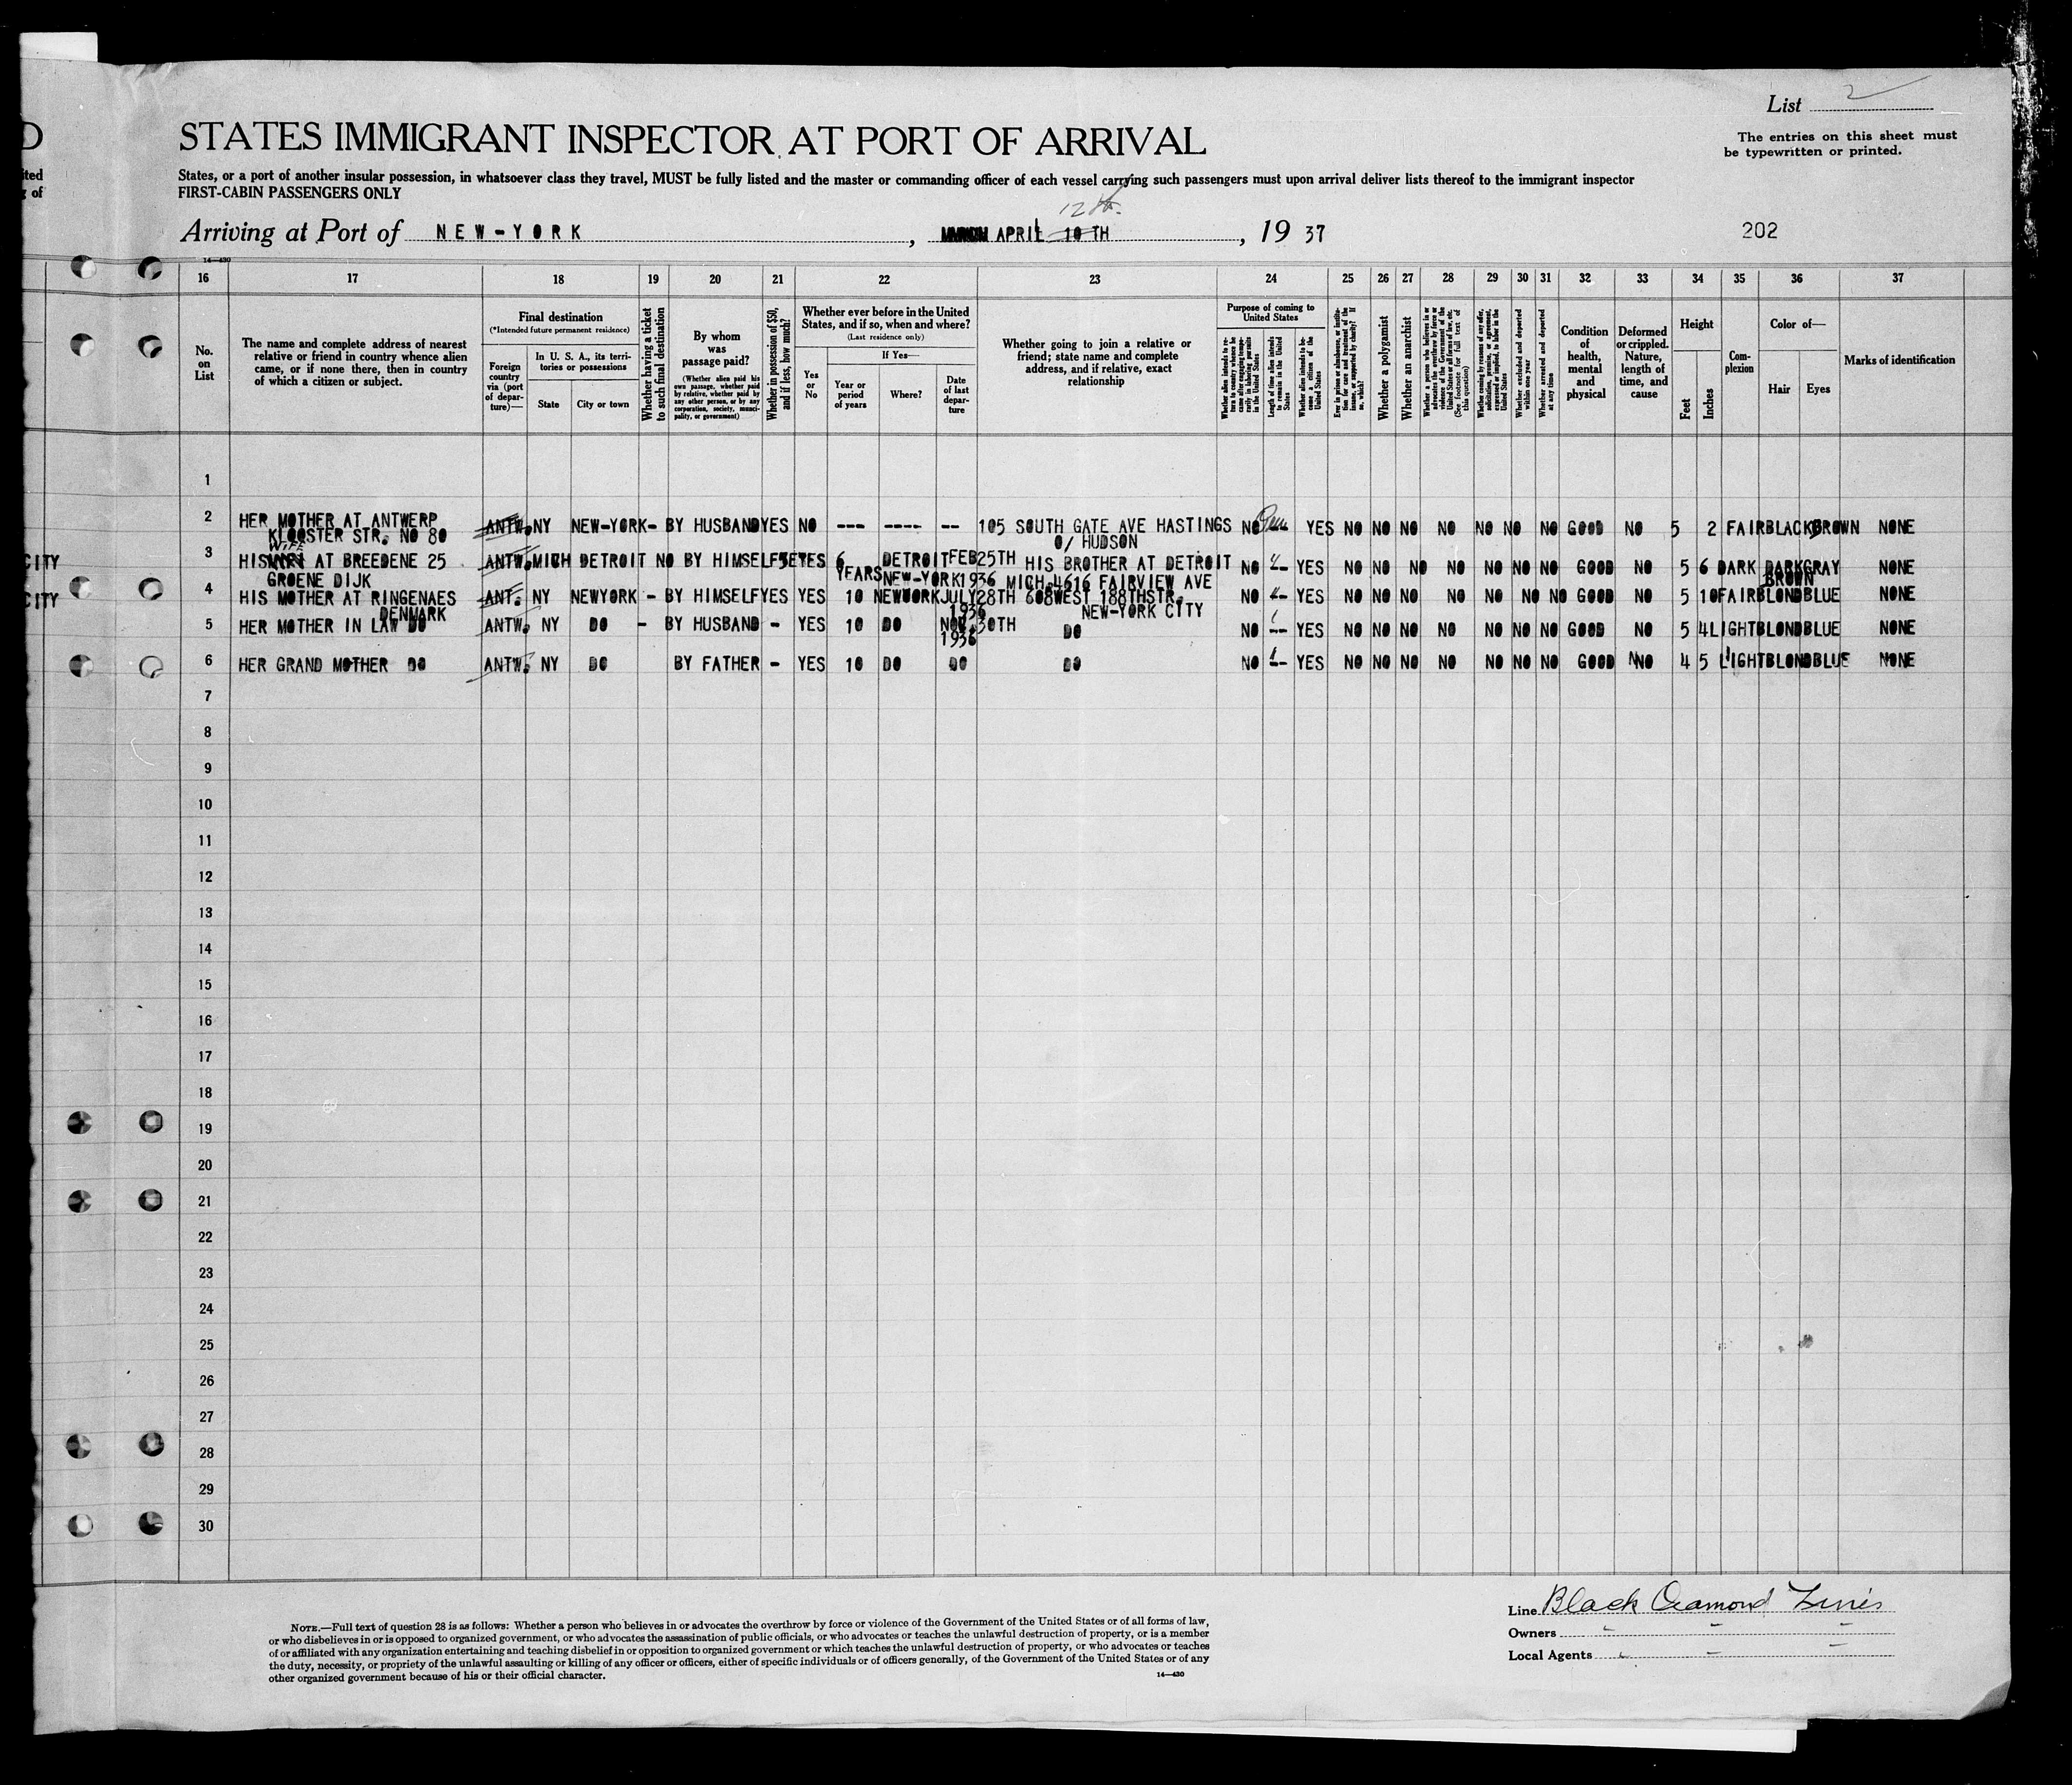 List 2
D
STATES IMMIGRANT INSPECTOR AT PORT OF ARRIVAL
The entries on this sheet must
be typewritten or printed.
ited
g of
States, or a port of another insular possession, in whatsoever class they travel, MUST be fully listed and the master or commanding officer of each vessel carrying such passengers must upon arrival deliver lists thereof to the immigrant inspector
FIRST-CABIN PASSENGERS ONLY
12th
Arriving at Port of NEW-YORK, APRIL 10 TH, 1937
202
14—430
16 17 18 19 20 21 22 23 24 25 26 27 28 29 30 31 32 33 34 35 36 37
No. on List
The name and complete address of nearest
relative or friend in country whence alien
came, or if none there, then in country
of which a citizen or subject.
Final destination
(*Intended future permanent residence)
Foreign country via (port of departure)—
In U. S. A., its territories or possessions
State
City or town
Whether having a ticket to such final destination
By whom was passage paid?
(Whether alien paid his own passage, whether paid by relative, whether paid by any other person, or by any corporation, society, municipality, or government)
Whether in possession of $50, and if less, how much?
Whether ever before in the United
States, and if so, when and where?
(Last residence only)
Yes or No
If Yes—
Year or period of years
Where?
Date of last departure
Whether going to join a relative or
friend; state name and complete
address, and if relative, exact
relationship
Purpose of coming to United States
Whether alien intends to return to country whence he came after engaging temporarily in laboring pursuits in the United States
Length of time alien intends to remain in the United States
Whether alien intends to become a citizen of the United States
Ever in prison or almshouse, or institution for care and treatment of the insane, or supported by charity? If so, which?
Whether a polygamist
Whether an anarchist
Whether a person who believes in or advocates the overthrow by force or violence of the Government of the United States or all forms of law, etc. (See footnote for full text of this question)
Whether coming by reasons of any offer, solicitation, promise, or agreement, expressed or implied, to labor in the United States
Whether excluded and deported within one year
Whether arrested and deported at any time
Condition of health, mental and physical
Deformed or crippled. Nature, length of time, and cause
Height
Feet
Inches
Complexion
Color of—
Hair
Eyes
Marks of identification
1
2 HER MOTHER AT ANTWERP ANTW. NY NEW-YORK - BY HUSBAND YES NO --- ---- -- 105 SOUTH GATE AVE HASTINGS NO YES NO NO NO NO NO NO NO GOOD NO 5 2 FAIR BLACK BROWN NONE
KLOOSTER STR. NO 80 O/ HUDSON
WIFE
CITY 3 HIS AT BREEDENE 25 ANTW. MICH DETROIT NO BY HIMSELF YES 6 DETROIT FEB 25TH HIS BROTHER AT DETROIT NO YES NO NO NO NO NO NO NO GOOD NO 5 6 DARK DARK GRAY NONE
GROENE DIJK YEARS NEW-YORK 1936 MICH. 4616 FAIRVIEW AVE BROWN
CITY 4 HIS MOTHER AT RINGENAES ANT. NY NEWYORK - BY HIMSELF YES YES 10 NEWYORK JULY 28TH 608 WEST 188THSTR. NO YES NO NO NO NO NO NO NO GOOD NO 5 10 FAIR BLOND BLUE NONE
DENMARK 1936 NEW-YORK CITY
5 HER MOTHER IN LAW DO ANTW. NY DO - BY HUSBAND - YES 10 DO NOV. 30TH DO NO -- YES NO NO NO NO NO NO NO GOOD NO 5 4 LIGHT BLOND BLUE NONE
1936
6 HER GRAND MOTHER DO ANTW. NY DO BY FATHER - YES 10 DO DO DO NO YES NO NO NO NO NO NO NO GOOD NO 4 5 LIGHT BLOND BLUE NONE
7
8
9
10
11
12
13
14
15
16
17
18
19
20
21
22
23
24
25
26
27
28
29
30
NOTE.—Full text of question 28 is as follows: Whether a person who believes in or advocates the overthrow by force or violence of the Government of the United States or of all forms of law,
or who disbelieves in or is opposed to organized government, or who advocates the assassination of public officials, or who advocates or teaches the unlawful destruction of property, or is a member
of or affiliated with any organization entertaining and teaching disbelief in or opposition to organized government or which teaches the unlawful destruction of property, or who advocates or teaches
the duty, necessity, or propriety of the unlawful assaulting or killing of any officer or officers, either of specific individuals or of officers generally, of the Government of the United States or of any
other organized government because of his or their official character.
14—430
Line Black Diamond Lines
Owners
Local Agents